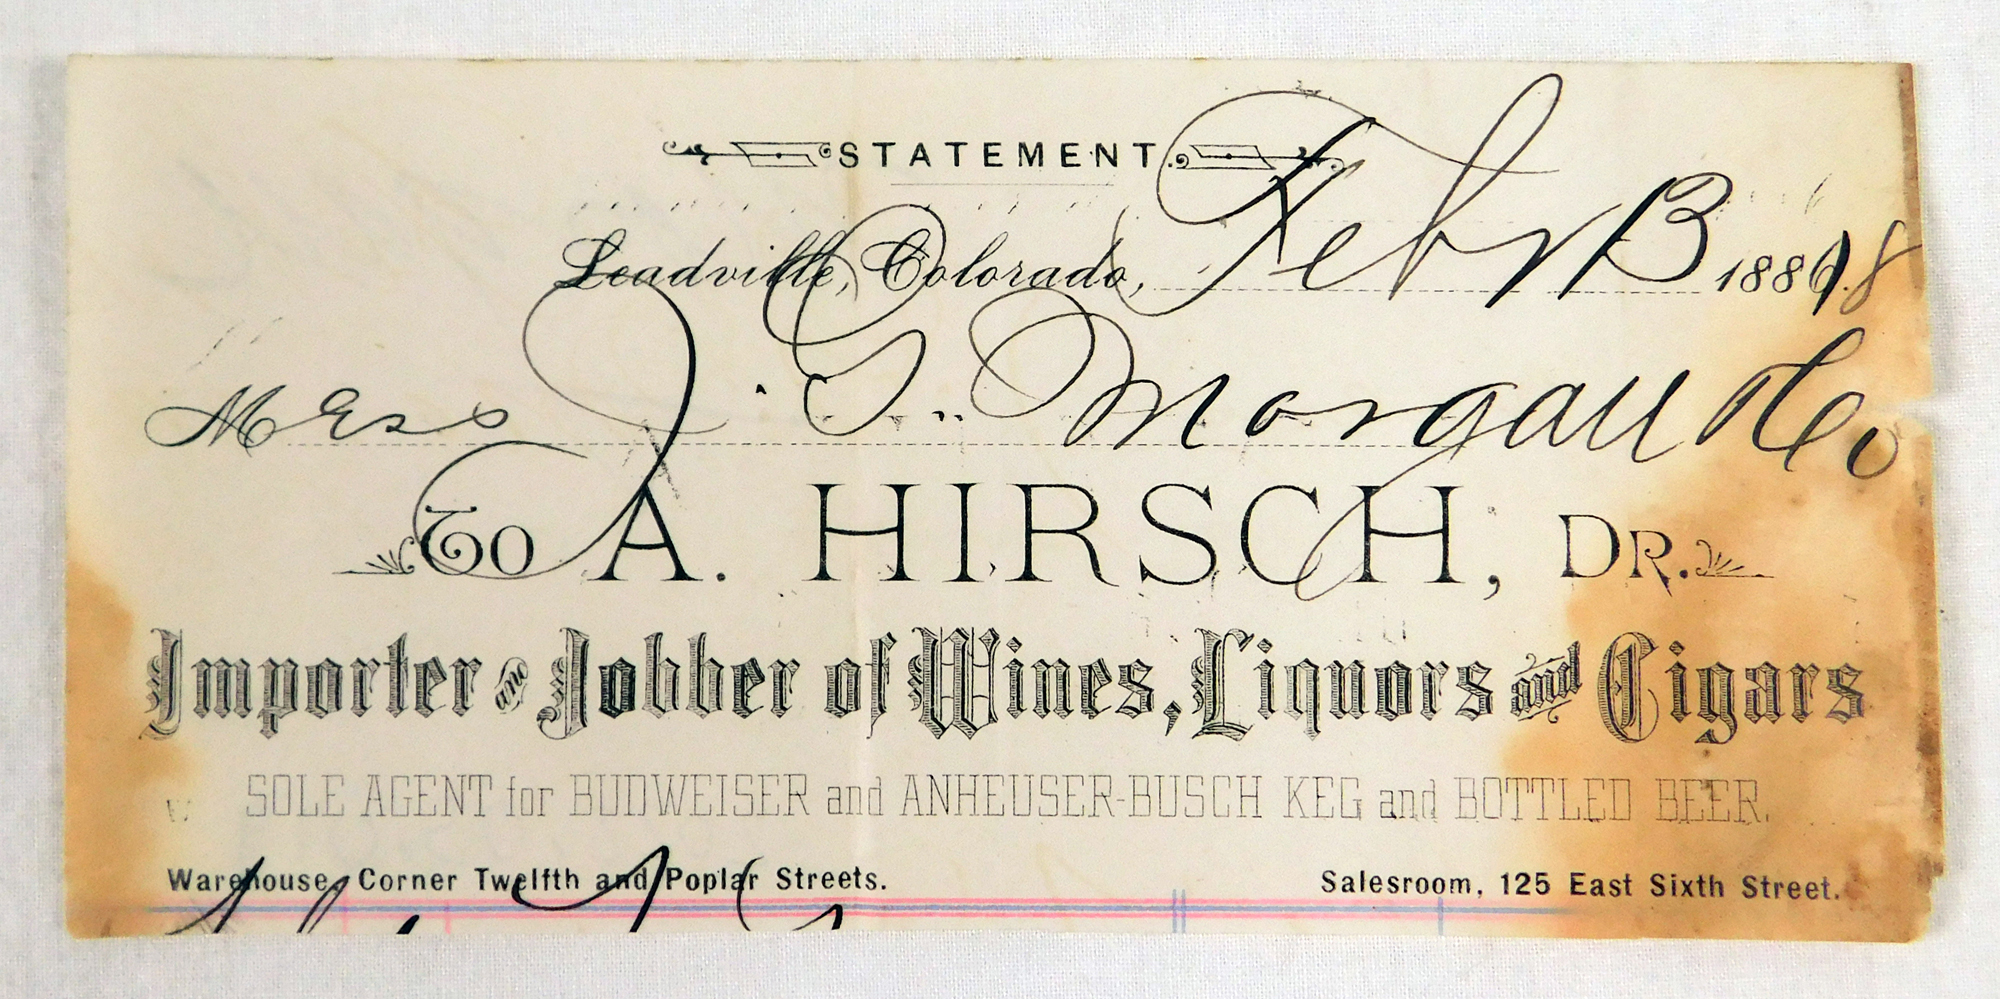 STATEMENT.
Leadville, Colorado, Feby 13 1888
Mess J. G. Morgan & Co
To A. HIRSCH, DR.
Importer and Jobber of Wines, Liquors and Cigars
SOLE AGENT for BUDWEISER and ANHEUSER-BUSCH KEG and BOTTLED BEER.
Warehouse, Corner Twelfth and Poplar Streets. Salesroom, 125 East Sixth Street.